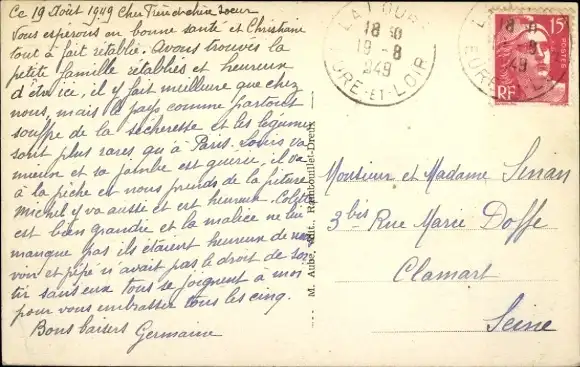 Ce 19 Août 1949 Cher frère et chère soeur
Vous espérons en bonne santé et Christiane
tout à fait rétablie. Avons trouvés la
petite famille rétablies et heureux
d'être ici, il y fait meilleure que chez
nous, mais le pays comme partout
souffre de la sécheresse et les légumes
sont plus rares qu'à Paris. Louis va
mieux et sa jambe est guérie, il va
à la pêche et nous prends de la friture
Michel y va aussi et est heureux. Colette
est bien grandie et la malice ne lui
manque pas ils étaient heureux de nous
voir et pépé n'avait pas le droit de sor
tir sans eux tous se joignent à moi
pour vous embrasser tous les cinq.
Bons baisers Germaine
M. Aubé, édit., Rambouillet-Dreux
LA LOUPE
18 30
19 - 8
1949
EURE-ET-LOIR
18 30
9-8
949
EURE-ET-L
15F
POSTES
RF
Monsieur et Madame Sinan
3 bis Rue Marie Doffe
Clamart
Seine